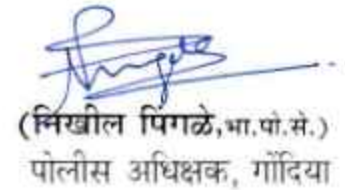 (निखील पिंगळे,भा.पो.से.)
पोलीस अधिक्षक, गोंदिया